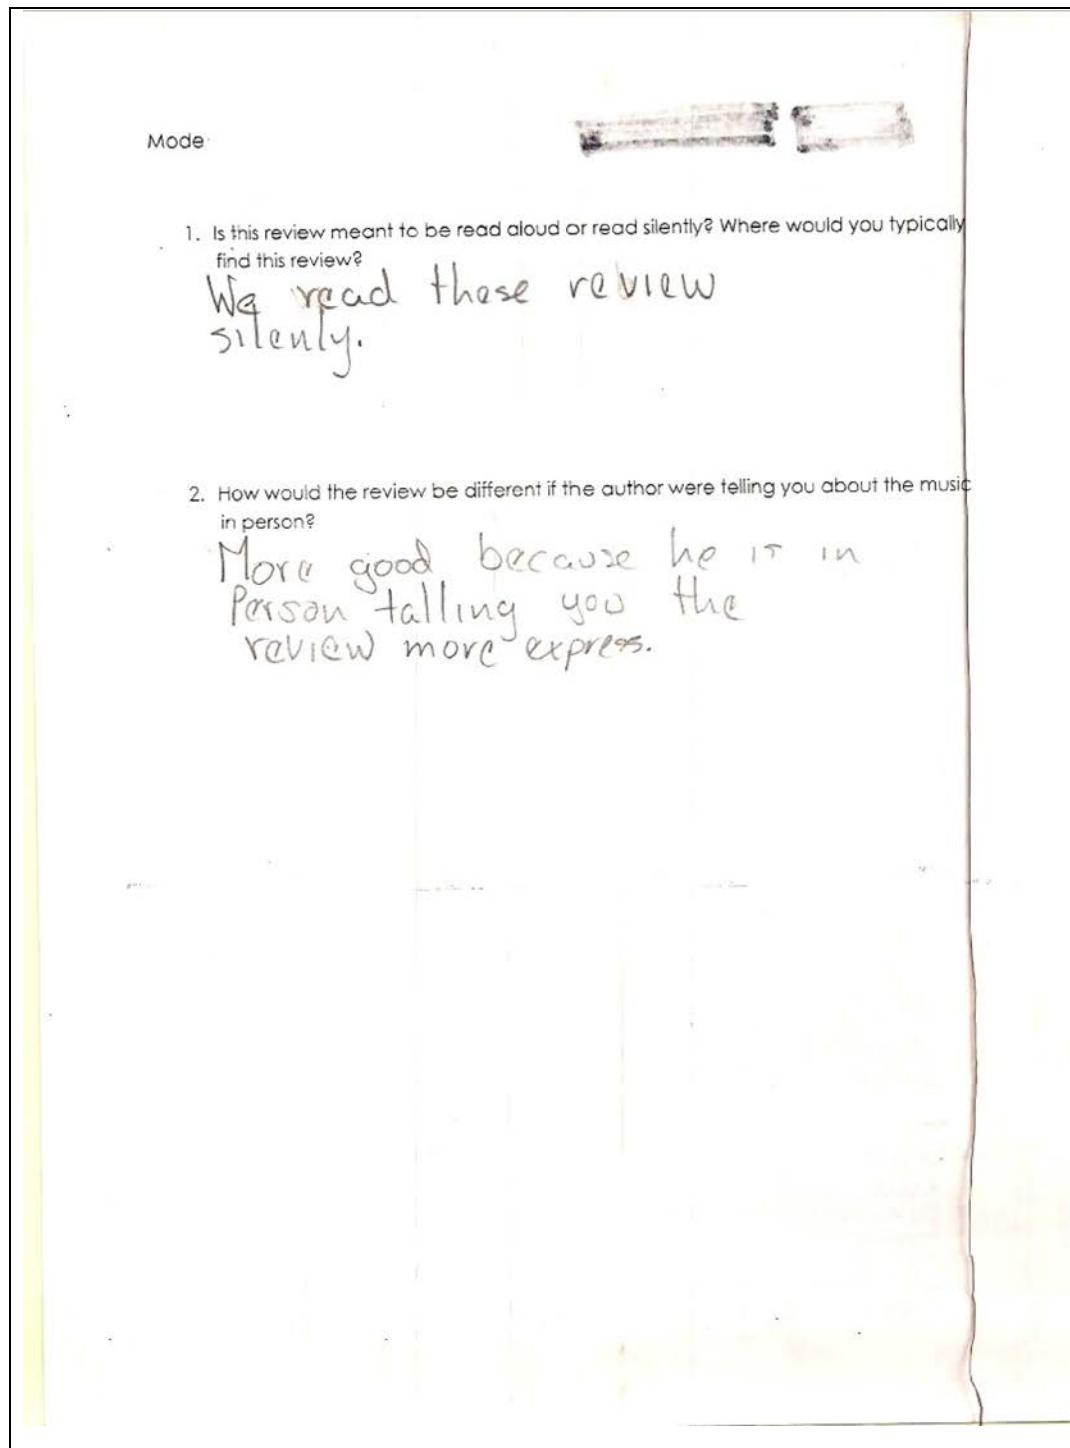 Mode
1. Is this review meant to be read aloud or read silently? Where would you typically
find this review?
We read these review
silenly.
2. How would the review be different if the author were telling you about the music
in person?
More good because he is in
Person telling you the
review more express.